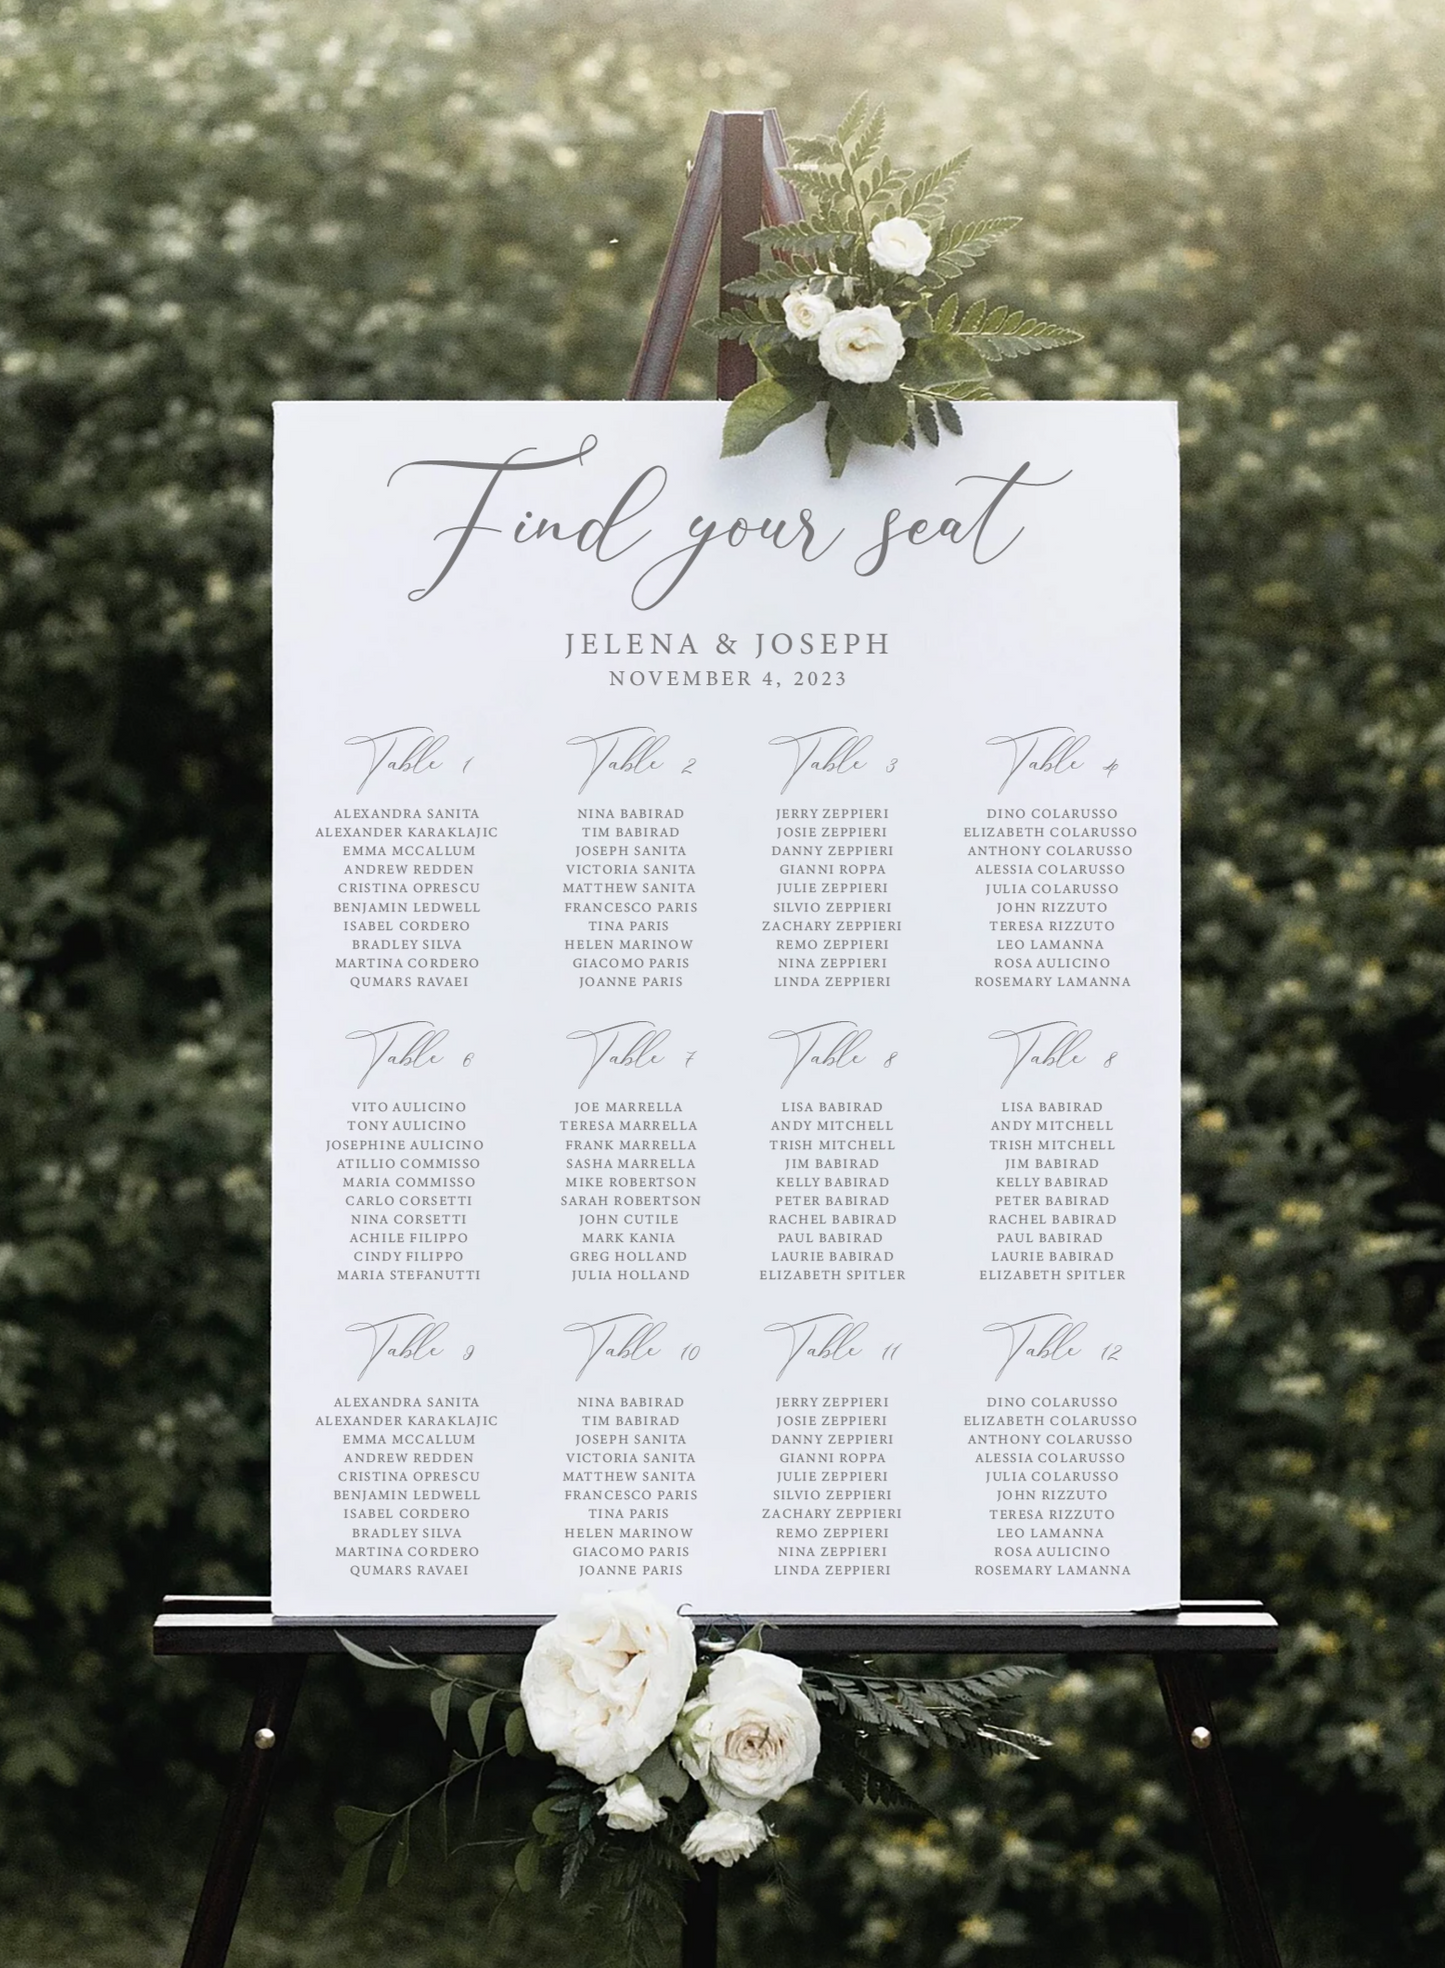 Find your seat
JELENA & JOSEPH
NOVEMBER 4, 2023
Table 1
ALEXANDRA SANITA
ALEXANDER KARAKLAJIC
EMMA MCCALLUM
ANDREW REDDEN
CRISTINA OPRESCU
BENJAMIN LEDWELL
ISABEL CORDERO
BRADLEY SILVA
MARTINA CORDERO
QUMARS RAVAEI
Table 2
NINA BABIRAD
TIM BABIRAD
JOSEPH SANITA
VICTORIA SANITA
MATTHEW SANITA
FRANCESCO PARIS
TINA PARIS
HELEN MARINOW
GIACOMO PARIS
JOANNE PARIS
Table 3
JERRY ZEPPIERI
JOSIE ZEPPIERI
DANNY ZEPPIERI
GIANNI ROPPA
JULIE ZEPPIERI
SILVIO ZEPPIERI
ZACHARY ZEPPIERI
REMO ZEPPIERI
NINA ZEPPIERI
LINDA ZEPPIERI
Table 4
DINO COLARUSSO
ELIZABETH COLARUSSO
ANTHONY COLARUSSO
ALESSIA COLARUSSO
JULIA COLARUSSO
JOHN RIZZUTO
TERESA RIZZUTO
LEO LAMANNA
ROSA AULICINO
ROSEMARY LAMANNA
Table 6
VITO AULICINO
TONY AULICINO
JOSEPHINE AULICINO
ATILLIO COMMISSO
MARIA COMMISSO
CARLO CORSETTI
NINA CORSETTI
ACHILE FILIPPO
CINDY FILIPPO
MARIA STEFANUTTI
Table 7
JOE MARRELLA
TERESA MARRELLA
FRANK MARRELLA
SASHA MARRELLA
MIKE ROBERTSON
SARAH ROBERTSON
JOHN CUTILE
MARK KANIA
GREG HOLLAND
JULIA HOLLAND
Table 8
LISA BABIRAD
ANDY MITCHELL
TRISH MITCHELL
JIM BABIRAD
KELLY BABIRAD
PETER BABIRAD
RACHEL BABIRAD
PAUL BABIRAD
LAURIE BABIRAD
ELIZABETH SPITLER
Table 8
LISA BABIRAD
ANDY MITCHELL
TRISH MITCHELL
JIM BABIRAD
KELLY BABIRAD
PETER BABIRAD
RACHEL BABIRAD
PAUL BABIRAD
LAURIE BABIRAD
ELIZABETH SPITLER
Table 9
ALEXANDRA SANITA
ALEXANDER KARAKLAJIC
EMMA MCCALLUM
ANDREW REDDEN
CRISTINA OPRESCU
BENJAMIN LEDWELL
ISABEL CORDERO
BRADLEY SILVA
MARTINA CORDERO
QUMARS RAVAEI
Table 10
NINA BABIRAD
TIM BABIRAD
JOSEPH SANITA
VICTORIA SANITA
MATTHEW SANITA
FRANCESCO PARIS
TINA PARIS
HELEN MARINOW
GIACOMO PARIS
JOANNE PARIS
Table 11
JERRY ZEPPIERI
JOSIE ZEPPIERI
DANNY ZEPPIERI
GIANNI ROPPA
JULIE ZEPPIERI
SILVIO ZEPPIERI
ZACHARY ZEPPIERI
REMO ZEPPIERI
NINA ZEPPIERI
LINDA ZEPPIERI
Table 12
DINO COLARUSSO
ELIZABETH COLARUSSO
ANTHONY COLARUSSO
ALESSIA COLARUSSO
JULIA COLARUSSO
JOHN RIZZUTO
TERESA RIZZUTO
LEO LAMANNA
ROSA AULICINO
ROSEMARY LAMANNA